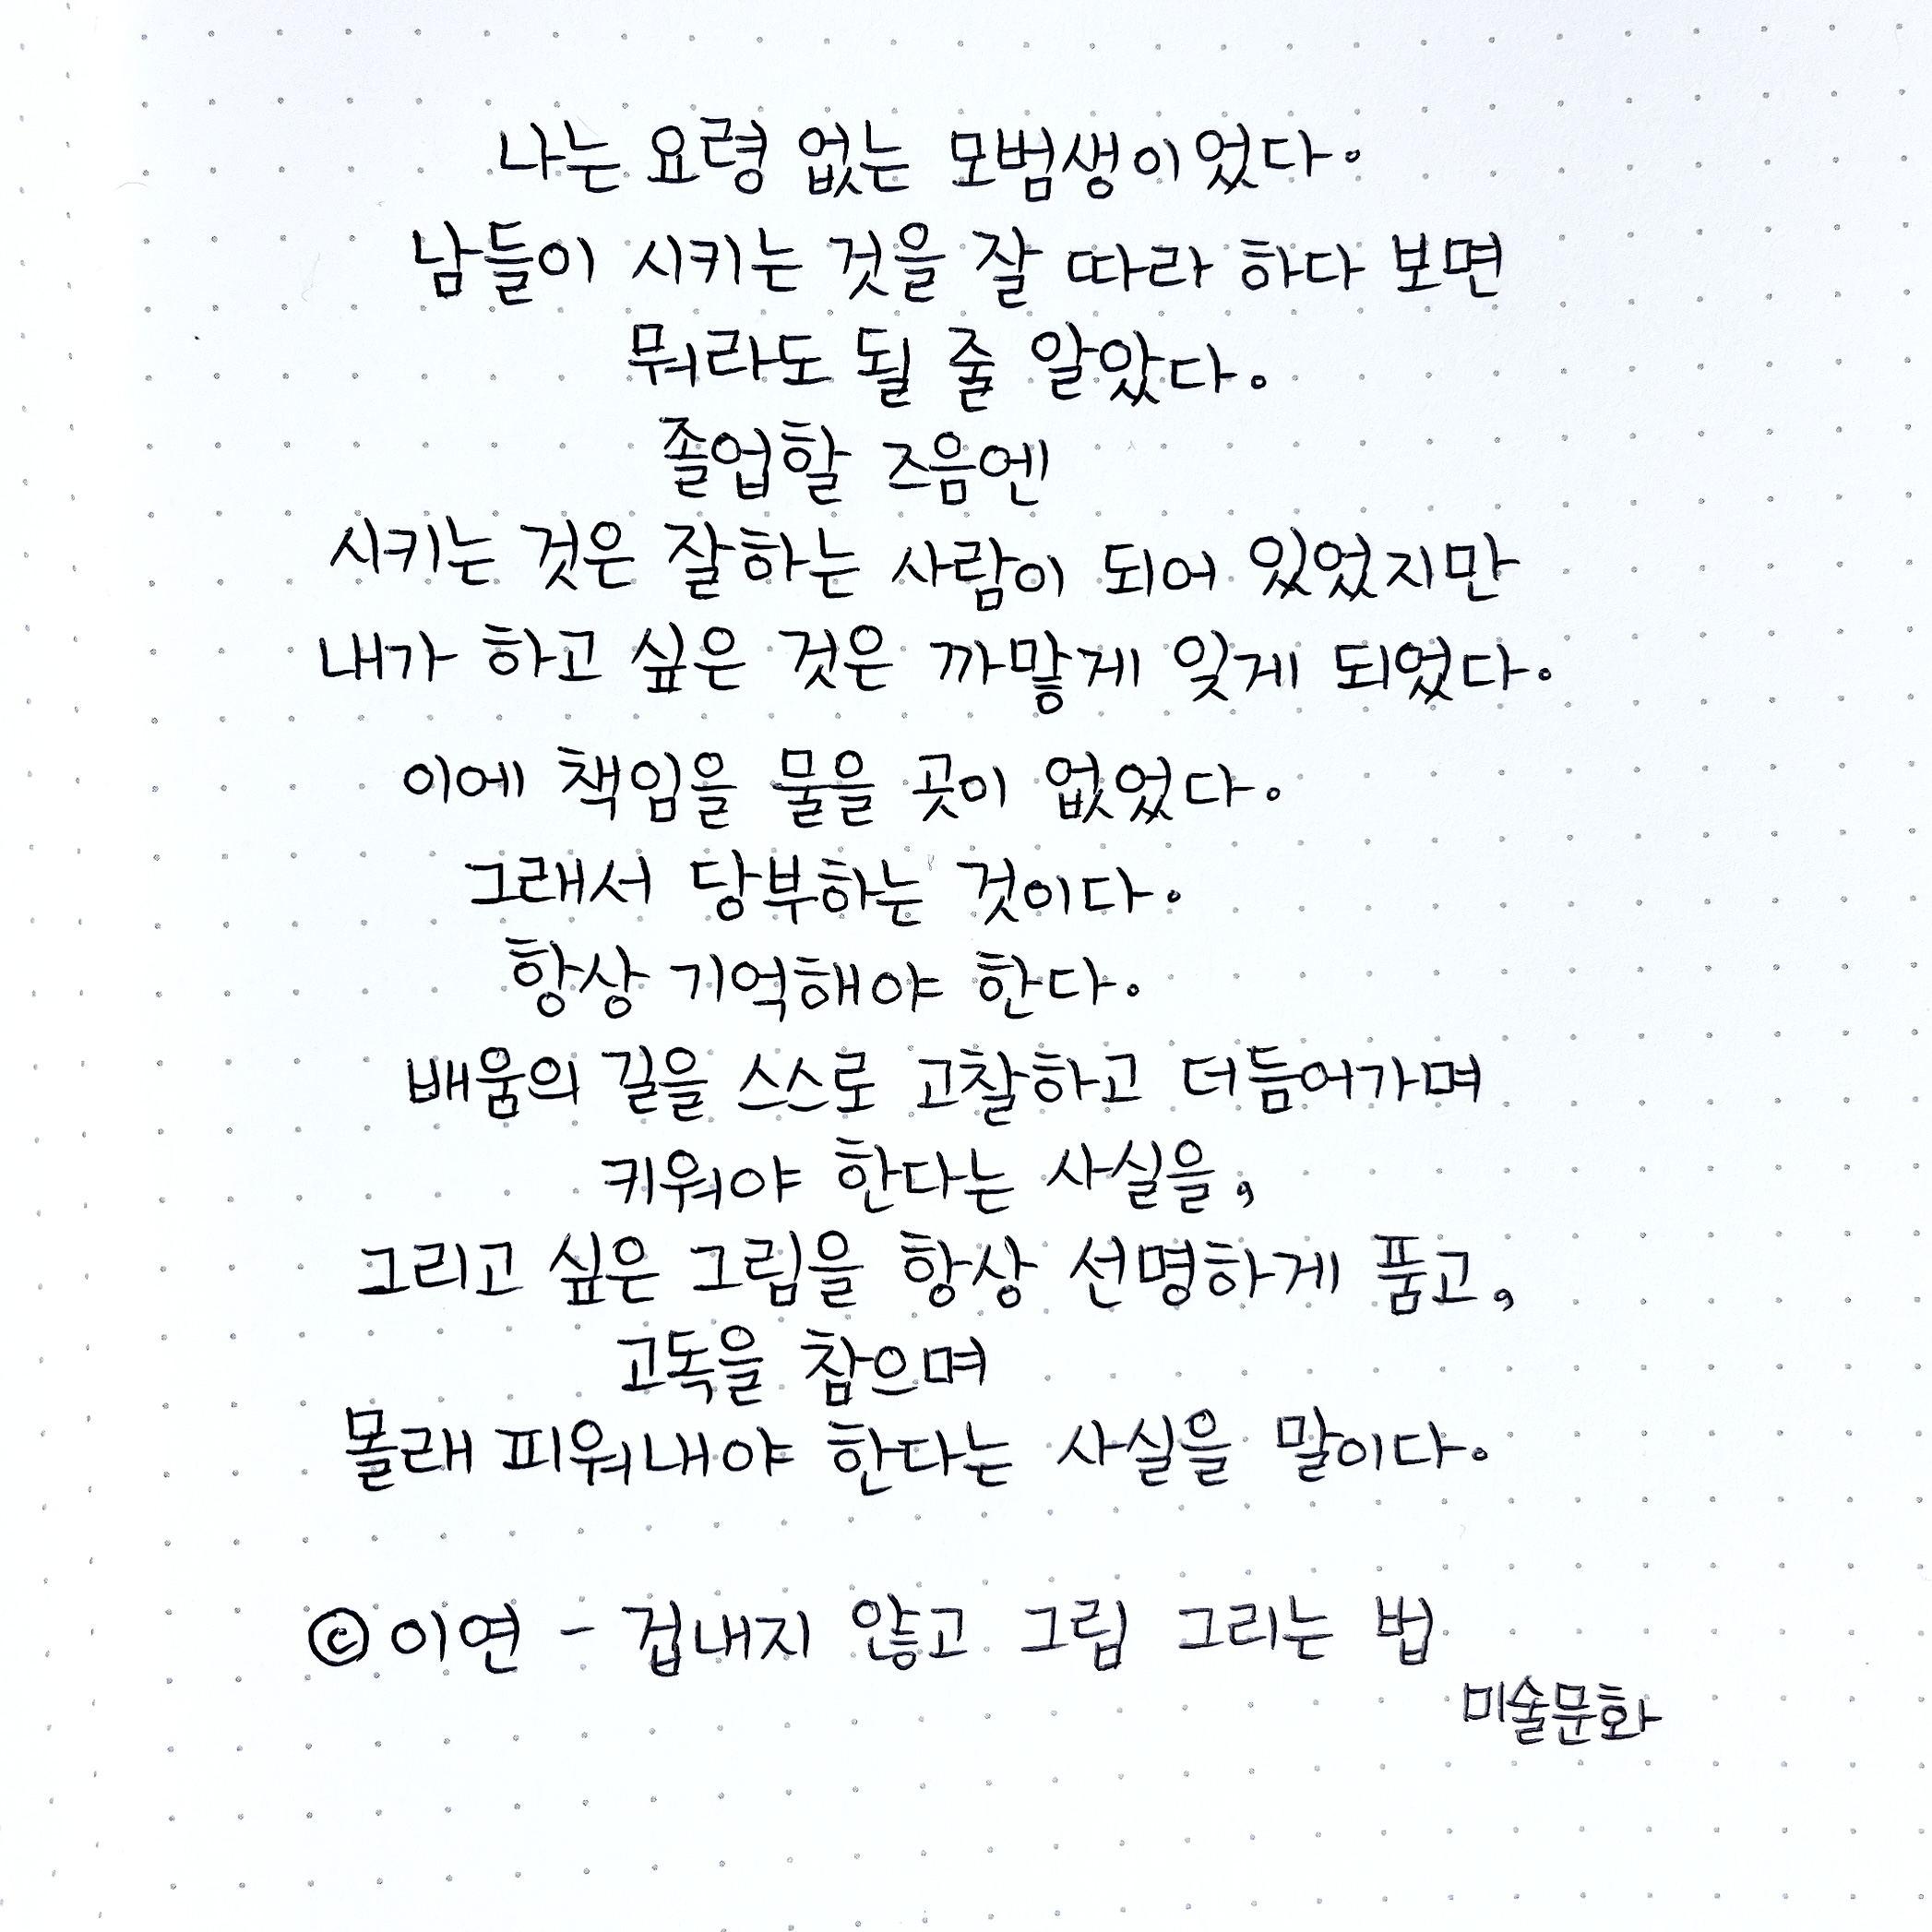 나는 요령 없는 모범생이었다.
남들이 시키는 것을 잘 따라 하다 보면
뭐라도 될 줄 알았다.
졸업할 즈음엔
시키는 것은 잘하는 사람이 되어 있었지만
내가 하고 싶은 것은 까맣게 잊게 되었다.
이에 책임을 물을 곳이 없었다.
그래서 당부하는 것이다.
항상 기억해야 한다.
배움의 길을 스스로 고찰하고 더듬어가며
키워야 한다는 사실을,
그리고 싶은 그림을 항상 선명하게 품고,
고독을 참으며
몰래 피워내야 한다는 사실을 말이다.
© 이연 - 겁내지 않고 그림 그리는 법
미술문화